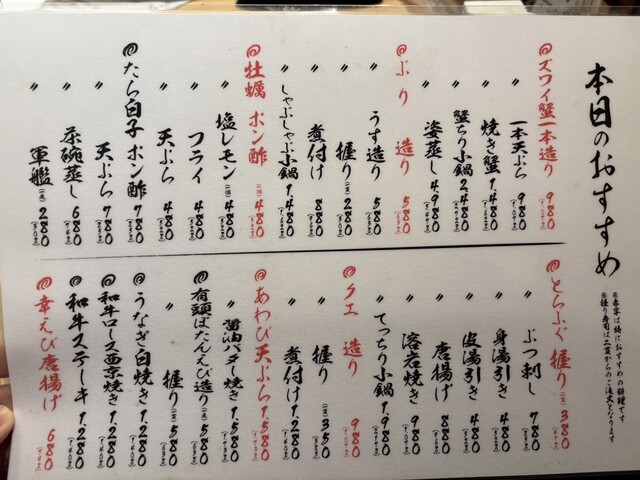 本日のおすすめ
※赤字は特におすすめの料理です
※握り寿司は二貫からのご注文となります
◎ズワイ蟹一本造り 980
〃 一本天ぷら 980
〃 焼き蟹 1.480
〃 蟹ちり小鍋 2.480
〃 姿蒸し 4.980
◎ぶり 造り 580
〃 うす造り 580
〃 握り(一貫) 280
〃 煮付け 880
〃 しゃぶしゃぶ小鍋 1.480
◎牡蠣 ポン酢(二個) 480
〃 塩レモン(二個) 480
〃 フライ 480
〃 天ぷら 480
◎たら白子 ポン酢 780
〃 天ぷら 780
〃 茶碗蒸し 680
〃 軍艦(一貫) 280
◎とらふぐ 握り(一貫) 380
〃 ぶつ刺し 780
〃 身湯引き 480
〃 皮湯引き 480
〃 唐揚げ 880
〃 溶岩焼き 980
〃 てっちり小鍋 1.980
◎クエ 造り 980
〃 握り(一貫) 350
〃 煮付け 1.280
◎あわび天ぷら 1.580
〃 醤油バター焼き 1.580
◎有頭ぼたんえび造り(一尾) 580
〃 握り(一貫) 580
◎うなぎ白焼き 1.280
◎和牛ロース西京焼き 1.280
◎和牛ステーキ 1.280
◎幸えび唐揚げ 680